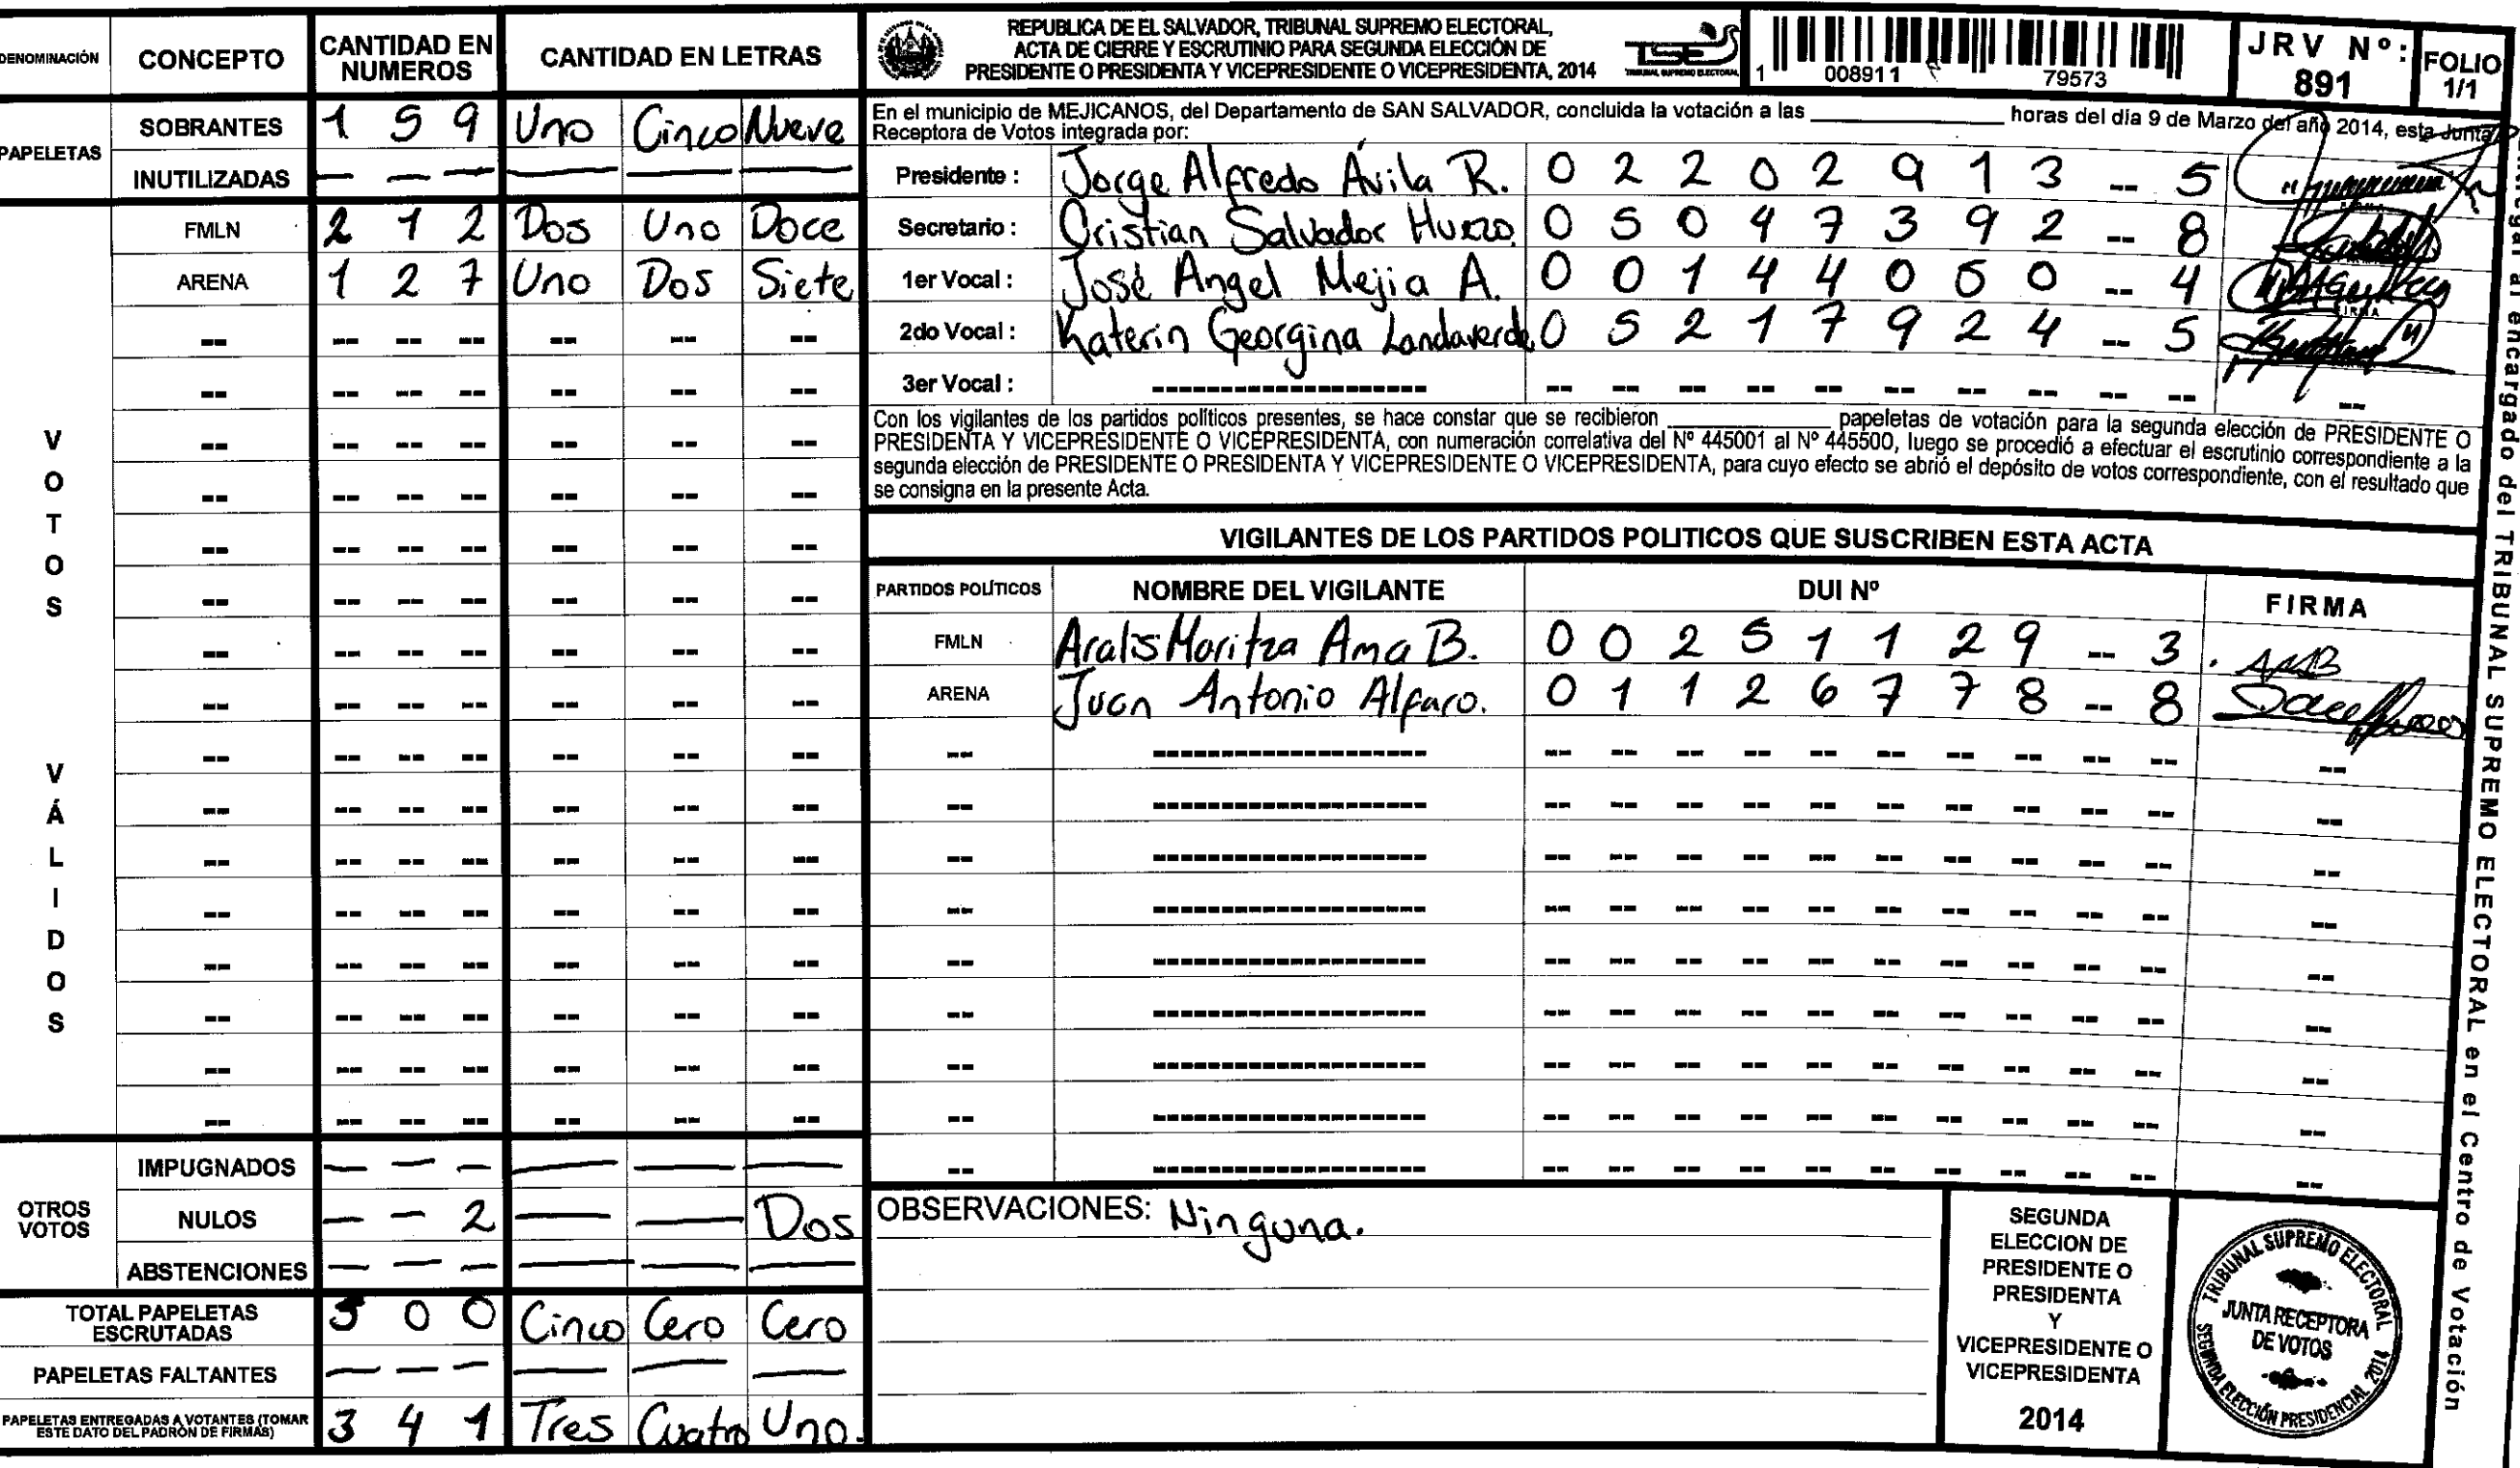 DENOMINACIÓN CONCEPTO CANTIDAD EN NUMEROS CANTIDAD EN LETRAS
PAPELETAS
SOBRANTES 1 5 9 Uno Cinco Nueve
INUTILIZADAS — — — — — —
VOTOS VÁLIDOS
FMLN 2 1 2 Dos Uno Doce
ARENA 1 2 7 Uno Dos Siete
OTROS VOTOS
IMPUGNADOS — — — — — —
NULOS — — 2 — — Dos
ABSTENCIONES — — — — — —
TOTAL PAPELETAS ESCRUTADAS 5 0 0 Cinco Cero Cero
PAPELETAS FALTANTES — — — — — —
PAPELETAS ENTREGADAS A VOTANTES (TOMAR ESTE DATO DEL PADRÓN DE FIRMAS) 3 4 1 Tres Cuatro Uno.
REPUBLICA DE EL SALVADOR, TRIBUNAL SUPREMO ELECTORAL,
ACTA DE CIERRE Y ESCRUTINIO PARA SEGUNDA ELECCIÓN DE
PRESIDENTE O PRESIDENTA Y VICEPRESIDENTE O VICEPRESIDENTA, 2014
TSE
TRIBUNAL SUPREMO ELECTORAL
1 008911 79573
JRV Nº: 891
FOLIO 1/1
En el municipio de MEJICANOS, del Departamento de SAN SALVADOR, concluida la votación a las ____ horas del día 9 de Marzo del año 2014, esta Junta
Receptora de Votos integrada por:
Presidente : Jorge Alfredo Ávila R. 0 2 2 0 2 9 1 3 -- 5
Secretario : Cristian Salvador Huezo. 0 5 0 4 7 3 9 2 -- 8
1er Vocal : José Angel Mejia A. 0 0 1 4 4 0 -- 4 FIRMA
2do Vocal : Katerin Georgina Landaverde 0 5 2 1 7 9 2 4 -- 5
3er Vocal : -------------------- -- -- -- -- -- -- -- -- -- --
Con los vigilantes de los partidos políticos presentes, se hace constar que se recibieron ____ papeletas de votación para la segunda elección de PRESIDENTE O
PRESIDENTA Y VICEPRESIDENTE O VICEPRESIDENTA, con numeración correlativa del Nº 445001 al Nº 445500, luego se procedió a efectuar el escrutinio correspondiente a la
segunda elección de PRESIDENTE O PRESIDENTA Y VICEPRESIDENTE O VICEPRESIDENTA, para cuyo efecto se abrió el depósito de votos correspondiente, con el resultado que
se consigna en la presente Acta.
VIGILANTES DE LOS PARTIDOS POLITICOS QUE SUSCRIBEN ESTA ACTA
PARTIDOS POLÍTICOS NOMBRE DEL VIGILANTE DUI Nº FIRMA
FMLN Aralis Maritza Ama B. 0 0 2 5 1 1 2 9 -- 3
ARENA Juan Antonio Alfaro. 0 1 1 2 6 7 7 8 -- 8
OBSERVACIONES: Ninguna.
SEGUNDA
ELECCION DE
PRESIDENTE O
PRESIDENTA
Y
VICEPRESIDENTE O
VICEPRESIDENTA
2014
TRIBUNAL SUPREMO ELECTORAL
JUNTA RECEPTORA
DE VOTOS
SEGUNDA ELECCIÓN PRESIDENCIAL 2014
al encargado del TRIBUNAL SUPREMO ELECTORAL en el Centro de Votación